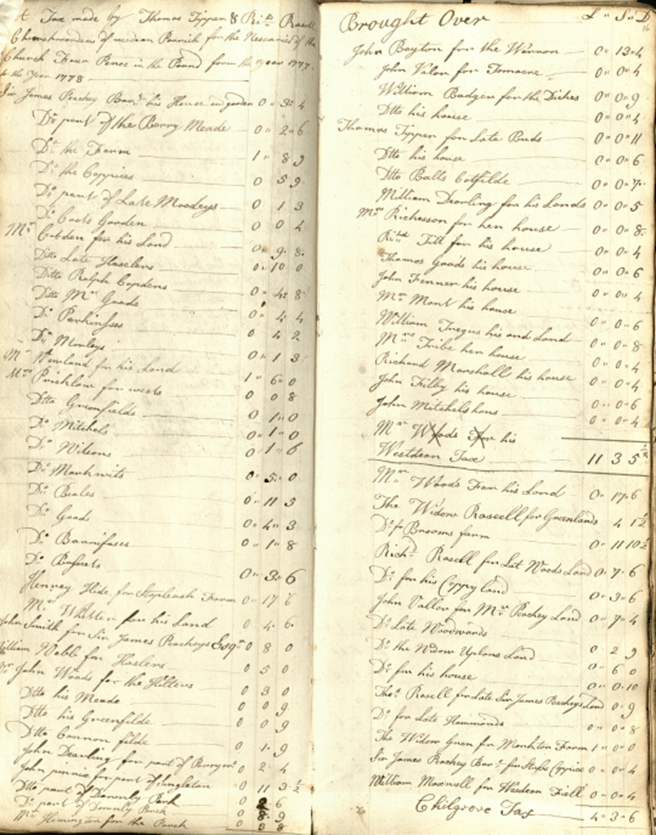 A Tax made by Thomas Tippen & Richd Rasell
Churchwardens of westdean Parrish for the Nessaries of the
Church Four Pence in the Pound from the year 1777
to the year 1778
Sir James Peachey Bart his House and garden 0 " 3 " 4
Do part of the Berry Meade 0 " 2 " 6
Do the Farm 1 " 8 9
Do the Coppices 0 5 9
Do part of Late Moodeys 0 1 3
Do Cooks Gooden 0 0 4
Mr Cobden for his Land 0 " 9 " 8
Ditto Late Haselers 0 " 10 0
Ditto Ralph Copdens 0 " 4 8
Ditto Mr Goads 0 " 4 4
Do Perkinsses 0 4 2
Do Monleys 0 " 1 3
Mr Newland for his Land 1 " 6 " 0
Mrs Pricklow for wests 0 0 8
Ditto Greenfields 0 " 1 " 0
Do Mitchels 0 " 1 " 0
Do Wilsons 0 " 1 " 6
Do Monkwits 0 " 5 " 0
Do Beales 0 " 11 3
Do Goads 0 " 4 " 3
Do Bannisses 0 " 1 " 8
Do 0 " 3 " 6
Henrey Hide for Stapleash Farm 0 " 17 6
Mr Whitten for his Land 0 " 4 " 6
John Smith for Sir James Peacheys Esqr 0 8 0
William Webb for Haslers 0 5 0
Mr John Woods for the Hilters 0 3 0
Ditto his Meade 0 0 9
Ditto his Greenfilde 0 0 9
Ditto Common filde 0 1 9
John Dearling for part of 0 2 4
John pinnix for part of Singleton 0 11 3 ½
Ditto part of Downly Park 0 2 6
Do part of Downly Park 0 8 9
Mr for the Parish 0 0 8
Brought Over L " S " D
John Boyton for the Warren 0 " 13 " 4
John Valor for 0 " 0 " 4
William Badgen for the Dickes 0 " 0 " 9
Dtto his house 0 " 0 " 4
Thomas Tippen for Late Buds 0 " 0 " 11
Dtto his house 0 " 0 " 6
Ditto Balls Cotfilde 0 " 0 " 7
William Dearling for his Lands 0 " 0 " 5
Mrs Richesson for her house 0 " 0 " 8
Richd Titt for his house 0 " 0 " 4
Thomas Goads his house 0 " 0 " 6
John Fenner his house 0 " 0 " 4
Mr Mont his house
William Tregus his and Land 0 " 0 " 6
Mrs Tribe her house 0 " 0 " 8
Richard Marshall his house 0 " 0 " 4
John Tilby his house 0 " 0 " 4
John Mitchels hous 0 " 0 " 6
0 " 0 " 4
Mr Woods For his
Westdean Tax 11 3 5 ½
Mr Woods From his Land 0 " 17 " 6
The Widow Raseell for Greenlands 4 1 ½
Do for Brooms farm 0 " 11 10 ½
Richd Rasell for Lat Woods Land 0 " 7 " 6
Do for his Coppy land 0 " 3 " 6
John Vallor for Mr Peachey Land 0 " 7 " 4
Do Late Woodwards
Do the Widow Uptons Land 0 2 9
Do for his house 0 " 6 0
Thos Rasell for Late Sir James Peacheys Land 0 " 0 " 10
0 " 9
Do for Late Hammonds 0 " 0 " 8
The Widow Green for Monkton Farm 1 " 0 " 0
Sir James Peachey Bart for Copice 0 " 0 " 4
William Maxwell for Westdean Field 0 " 0 " 4
Chilgrove Tax 4 " 3 " 6